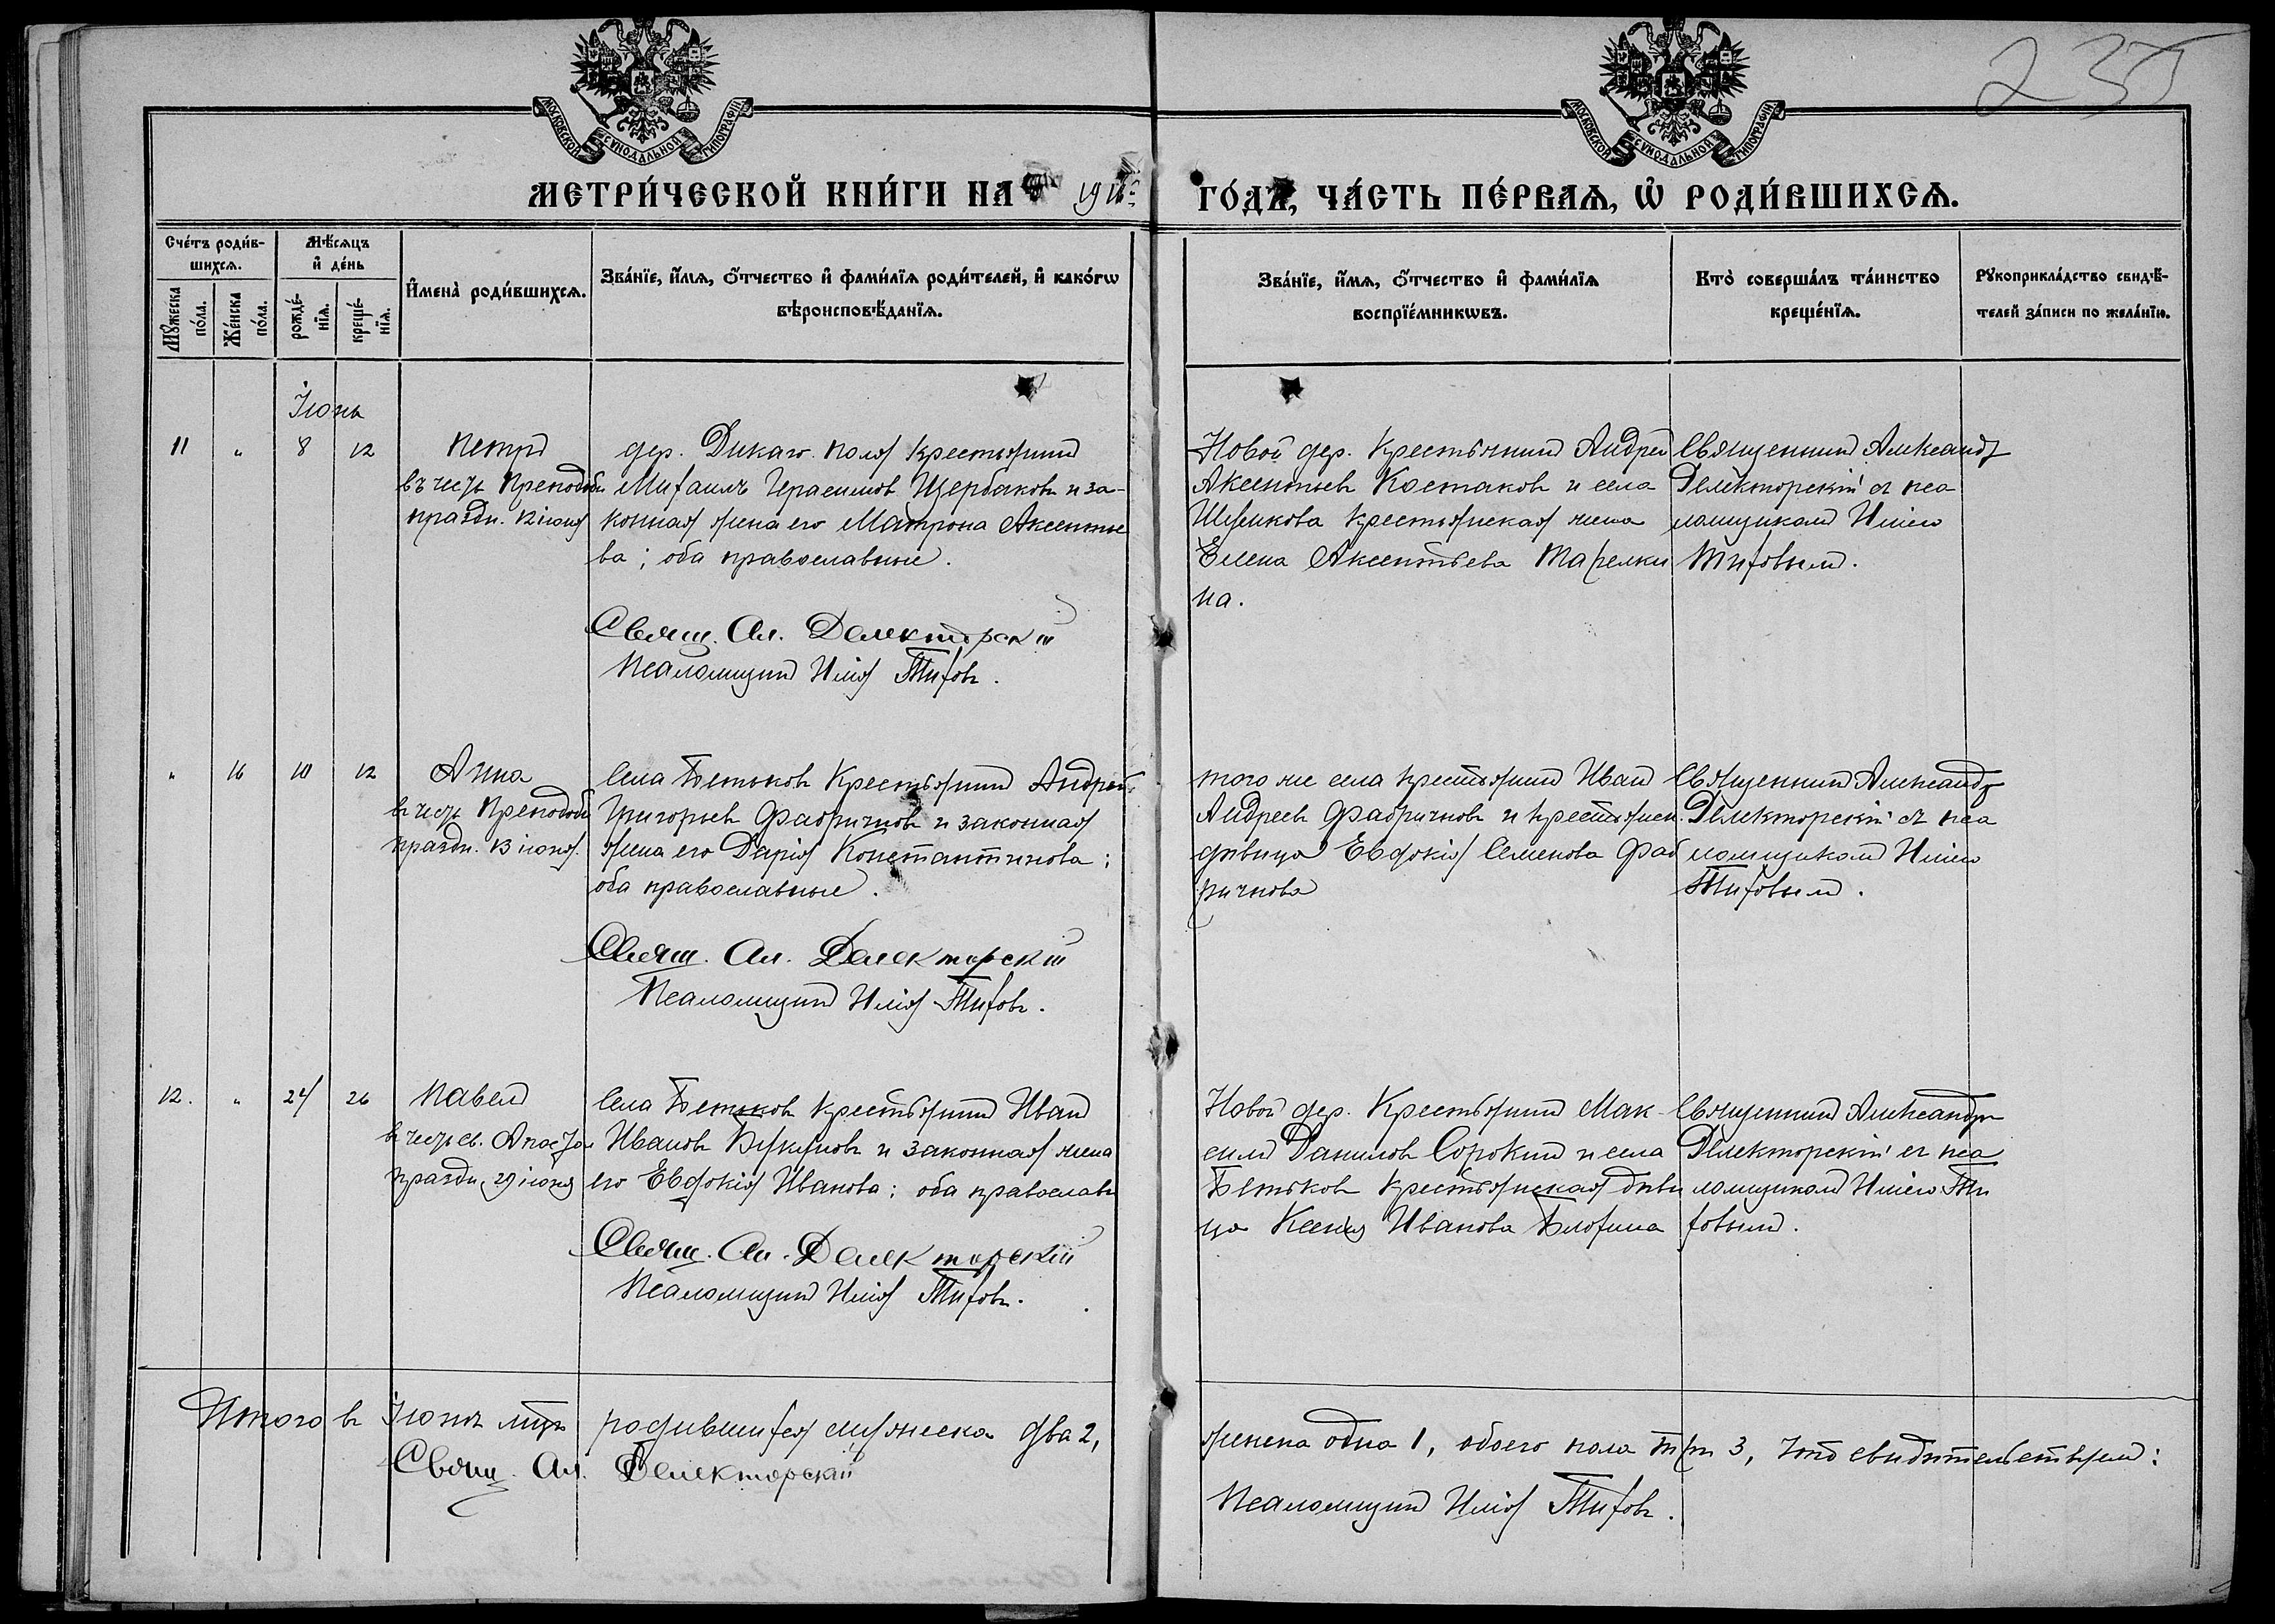 235
МОСКОВСКОЙ СѴНОДАЛЬНОЙ ТИПОГРАФІИ
МОСКОВСКОЙ СѴНОДАЛЬНОЙ ТИПОГРАФІИ
МЕТРИ́ЧЕСКОЙ КНИ́ГИ НА 191
ГО́ДЪ, ЧА́СТЬ ПЕ́РВАѦ, Ѡ҆ РОДИ́ВШИХСѦ.
Сче́тъ роди́в-
шихсѧ.
Мѣ́сѧцъ
и҆ де́нь
Мꙋ́жеска
по́ла.
Же́нска
по́ла.
рожде́-
нїѧ.
креще́-
нїѧ.
И҆мена̀ роди́вшихсѧ.
Зва́нїе, и҆́мѧ, ѻ҆́тчество и҆ фами́лїѧ роди́телей, и҆ како́гѡ
вѣроисповѣ́данїѧ.
Зва́нїе, и҆́мѧ, ѻ҆́тчество и҆ фами́лїѧ
воспрїе́мникѡвъ.
Кто̀ соверша́лъ та́инство
креще́нїѧ.
Рꙋкоприкла́дство свидѣ́-
телей за́писи по жела́нїю.
Іюнь
11 " 8 12
Петръ
въ честь Преподоб
праздн. 12 іюня
дер. Дикаго поля крестьянинъ
Михаилъ Герасимовъ Щербаковъ и за-
конная жена его Матрона Аксентье
ва; оба православные.
Свящ. Ал. Делекторскій
Псаломщикъ Илія Титовъ.
Новой дер. крестьянинъ Андрей
Аксентьевъ Костаковъ и села
крестьянская жена
Елена Аксентьева Тарелки
на.
Священникъ Александръ
Делекторскій съ пса
ломщикомъ Иліею
Титовымъ.
" 16 10 12
Анна
въ честь Преподоб
праздн. 13 іюня.
Села Бетьковъ крестьянинъ Андрей
Григорьевъ Фабричновъ и законная
жена его Дарія Константинова;
оба православные.
Свящ. Ал. Делекторскій
Псаломщикъ Илія Титовъ.
того же села крестьянинъ Иванъ
Андреевъ Фабричновъ и крестьянск.
дѣвица Евдокія Семенова Фаб
ричнова
Священникъ Александръ
Делекторскій съ пса
ломщикомъ Иліею
Титовымъ.
12. " 24 26
Павелъ
въ честь св. Апостола
праздн. 29 іюня
Села Бетьковъ крестьянинъ Иванъ
Ивановъ и законная жена
его Евдокія Иванова; оба православн
Свящ. Ал. Делекторскій
Псаломщикъ Илія Титовъ.
Новой дер. крестьянинъ Мак
симъ Даниловъ Сорокинъ и села
Бетьковъ крестьянская дѣви
ца Ксенія Иванова Блохина
Священникъ Александръ
Делекторскій съ пса
ломщикомъ Иліею Ти
товымъ.
Итого въ Іюнѣ мцѣ родившихся мужеска два 2,
Свящ. Ал. Делекторскій
женска одна 1, обоего пола три 3, что свидѣтельствуемъ:
Псаломщикъ Илія Титовъ.